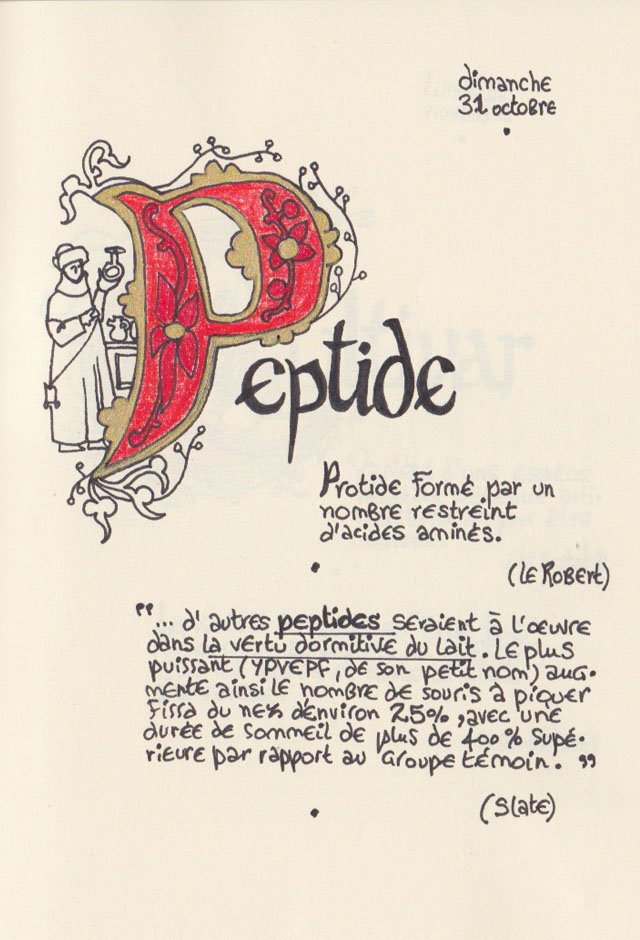 dimanche
31 octobre
Peptide
Protide formé par un
nombre restreint
d'acides aminés.
(Le Robert)
"... d'autres peptides seraient à l'oeuvre
dans la vertu dormitive du lait. Le plus
puissant (YPVEPF, de son petit nom) aug-
mente ainsi le nombre de souris à piquer
fissa du nez d'environ 25%, avec une
durée de sommeil de plus de 400% supé-
rieure par rapport au groupe témoin."
(Slate)